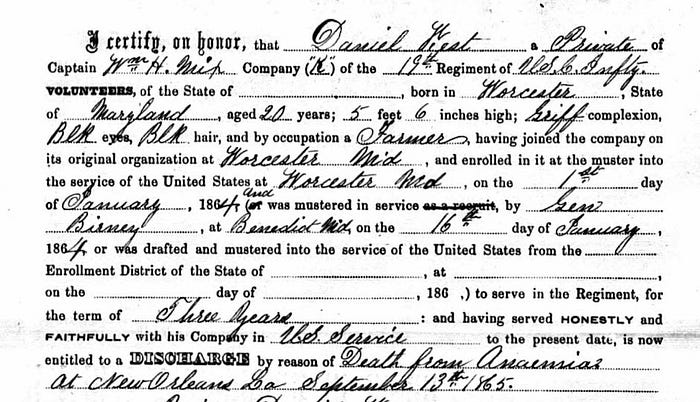 I certify, on honor, that Daniel West a Private of
Captain Wm H. Mix Company ("K") of the 19th Regiment of U.S.C. Infty.
VOLUNTEERS, of the State of , born in Worcester , State
of Maryland , aged 20 years; 5 feet 6 inches high; Griff complexion,
Blk eyes, Blk hair, and by occupation a Farmer, having joined the company on
its original organization at Worcester Md , and enrolled in it at the muster into
the service of the United States at Worcester Md , on the 1st day
of January , 1864, (or And was mustered in service as a recruit, by Gen
Birney , at Benedict Md, on the 16th day of January ,
1864 or was drafted and mustered into the service of the United States from the
Enrollment District of the State of , at ,
on the day of , 186 ,) to serve in the Regiment, for
the term of Three Years : and having served HONESTLY and
FAITHFULLY with his Company in U.S. Service to the present date, is now
entitled to a DISCHARGE by reason of Death from Anaemia
at New Orleans La September 13th 1865.